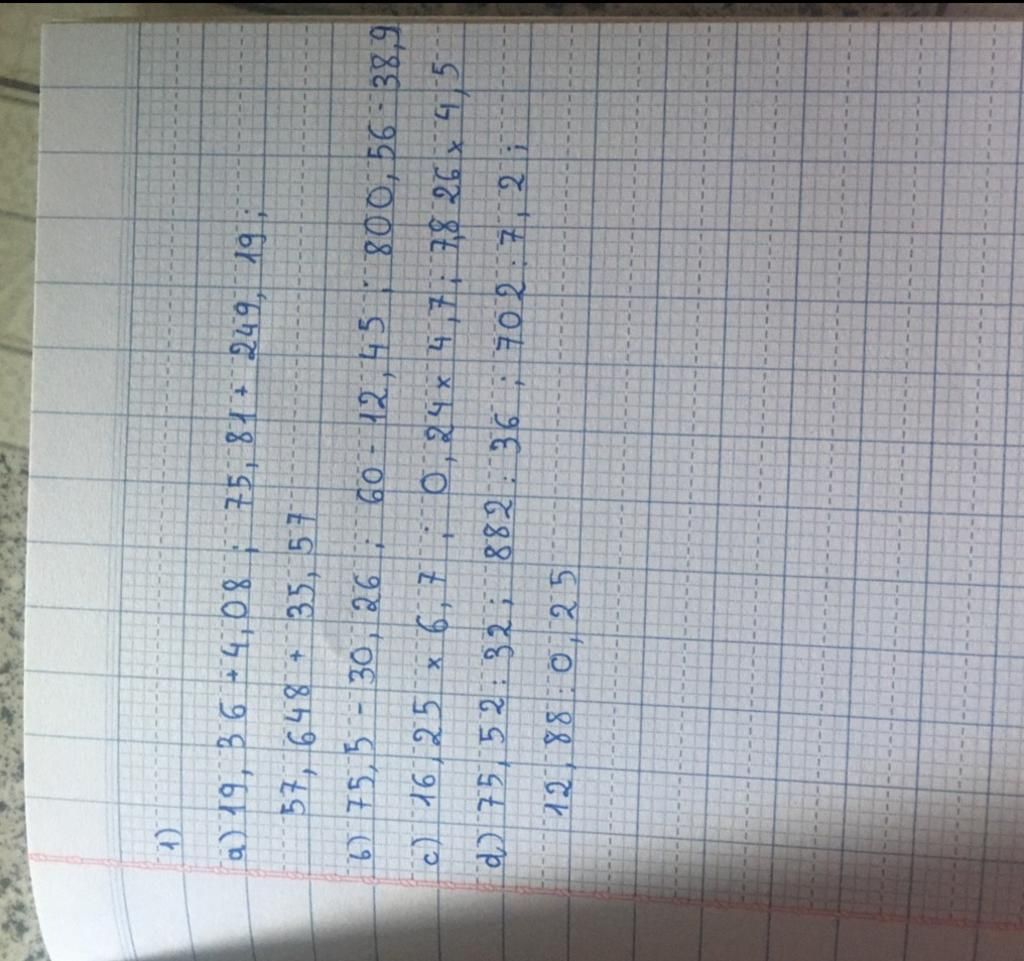 1)
a) 19,36 + 4,08 ; 75,81 + 249,19 ;
57,648 + 35,57
b) 75,5 - 30,26 ; 60 - 12,45 ; 800,56 - 38,9
c) 16,25 x 6,7 ; 0,24 x 4,7 ; 7,826 x 4,5
d) 75,52 : 32 ; 882 : 36 ; 702 : 7,2 ;
12,88 : 0,25